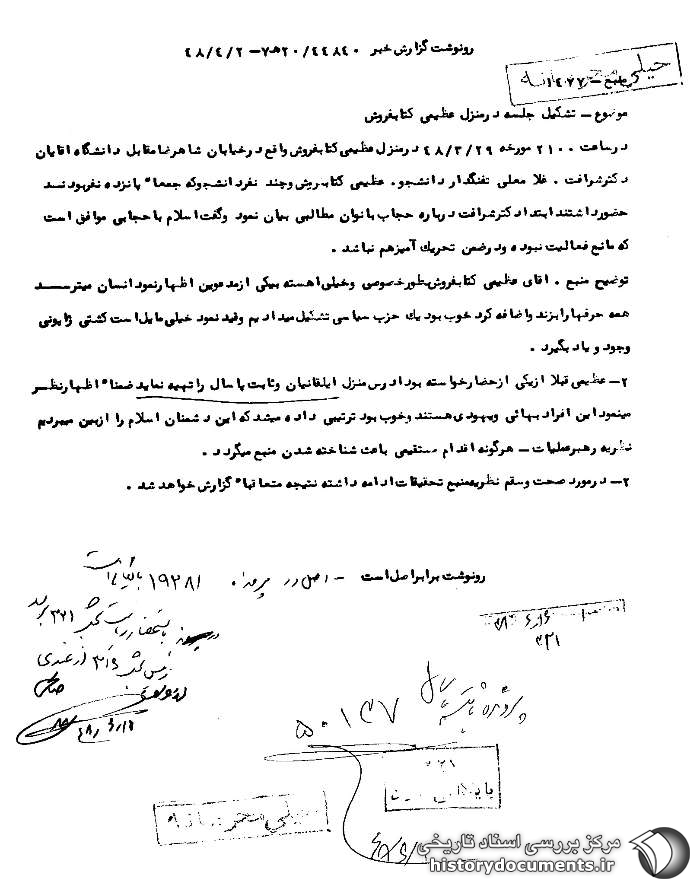 رونوشت گزارش خبر ۲۰/۴۴۸۴۰هـ۷ – ۴۸/۴/۲
خیلی محرمانه
منبع – ۱۴۷۷
موضوع – تشکیل جلسه در منزل عظیمی کتابفروش
در ساعت ۲۱۰۰ مورخه ۴۸/۳/۲۹ در منزل عظیمی کتابفروش واقع در خیابان شاهرضا مقابل دانشگاه اقایان
دکتر شرافت . غلا معلی تفنگدار دانشجو . عظیمی کتابروش و چند نفر دانشجو که جمعا" پانزده نفر بود ند
حضور داشتند ابتدا دکتر شرافت درباره حجاب بانوان مطالبی بیان نمود و گفت اسلام با حجابی موافق است
که مانع فعالیت نبوده و در ضمن تحریک آمیز هم نباشد .
توضیح منبع . اقای عظیمی کتابفروش بطور خصوصی و خیلی اهسته بیکی از مدعوین اظهار نمود انسان میترسد
همه حرفها را بزند و اضافه کرد خوب بود یک حزب سیاسی تشکیل میدادیم و قید نمود خیلی مایل است کشتی ژاپونی
وجود و یاد بگیرد .
۲– عظیمی قبلا از یکی از حضار خواسته بود ادرس منزل ایلقانیان و ثابت پاسال را تهیه نماید ضمنا" اظهار نظر
مینمود این افراد بهائی و یهودی هستند و خوب بود ترتیبی داده میشد که این دشمنان اسلام را از بین میبردیم
نظریه رهبر عملیات – هرگونه اقدام مستقیمی باعث شناخته شدن منبع میگردد .
۲– در مورد صحت و سقم نظریه منبع تحقیقات ادامه داشته نتیجه متعاقبا" گزارش خواهد شد .
رونوشت برابر اصل است – اصل در پرونده ۱۹۲۸۱ بایگانی است
۳۲۱
۵۰۱۴۷
۳۲۱
بایگانی
خیلی محرمانه
مرکز بررسی اسناد تاریخی
historydocuments.ir